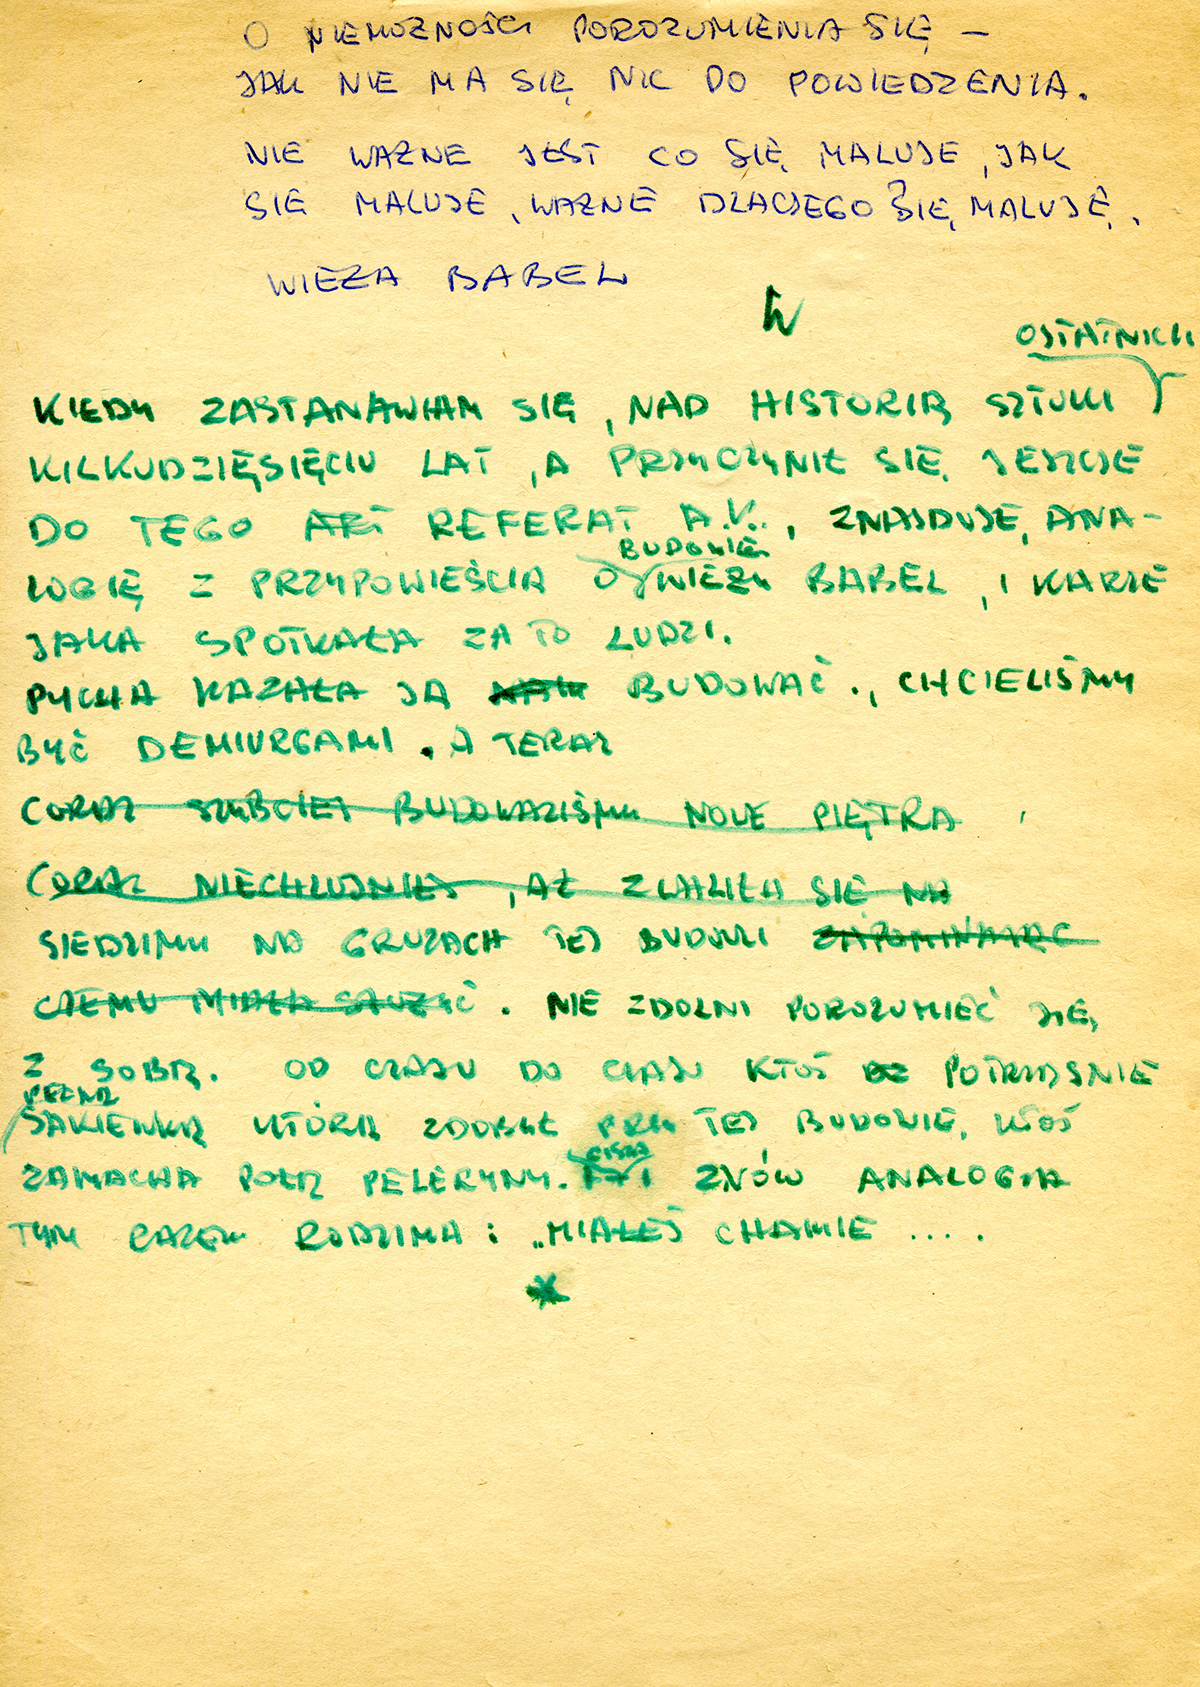 O NIEMOZNOŚCI POROZUMIENIA SIĘ –
JAK NIE MA SIĘ NIC DO POWIEDZENIA.
NIE WAZNE JEST CO SIĘ MALUJE, JAK
SIE MALUJE, WAZNE DLACZEGO SIĘ MALUJĘ.
WIEZA BABEL
OSTATNICH
KIEDY ZASTANAWIAM SIĘ, NAD HISTORIĄ SZTUKI
KILKUDZIĘSIĘCIU LAT, A PRZYCZYNIŁ SIĘ JESZCZE
DO TEGO ART REFERAT A.V., ZNAJDUJE, ANA-
BUDOWIE
LOGIĘ Z PRZYPOWIEŚCIA O WIEZY BABEL, I KARZE
JAKA SPOTKAŁA ZA TO LUDZI.
PYCHA KAZAŁA JĄ NAM BUDOWAĆ., CHCIELIŚMY
BYĆ DEMIURGAMI. A TERAZ
CORAZ SZYBCIEJ BUDOWALIŚMY NOWE PIĘTRA
CORAZ NIECHLUJNIEJ, AŻ ZWALIŁA SIE NA
SIEDZIMY NA GRUZACH TEJ BUDOWLI ZAPOMINAJĄC
CZEMU MIAŁA SŁUZYĆ. NIE ZDOLNI POROZUMIEĆ SIĘ,
Z SOBĄ. OD CZASU DO CZASU KTOŚ POTRZĄŚNIE
PEŁNĄ
SAKIEWKĄ KTÓRĄ ZDOBYŁ PRZY TEJ BUDOWIE, KTOŚ
CISZA
ZAMACHA POŁĄ PELERYNY. I ZNÓW ANALOGIA
TYM RAZEM RODZIMA: „MIAŁEŚ CHAMIE ....
*